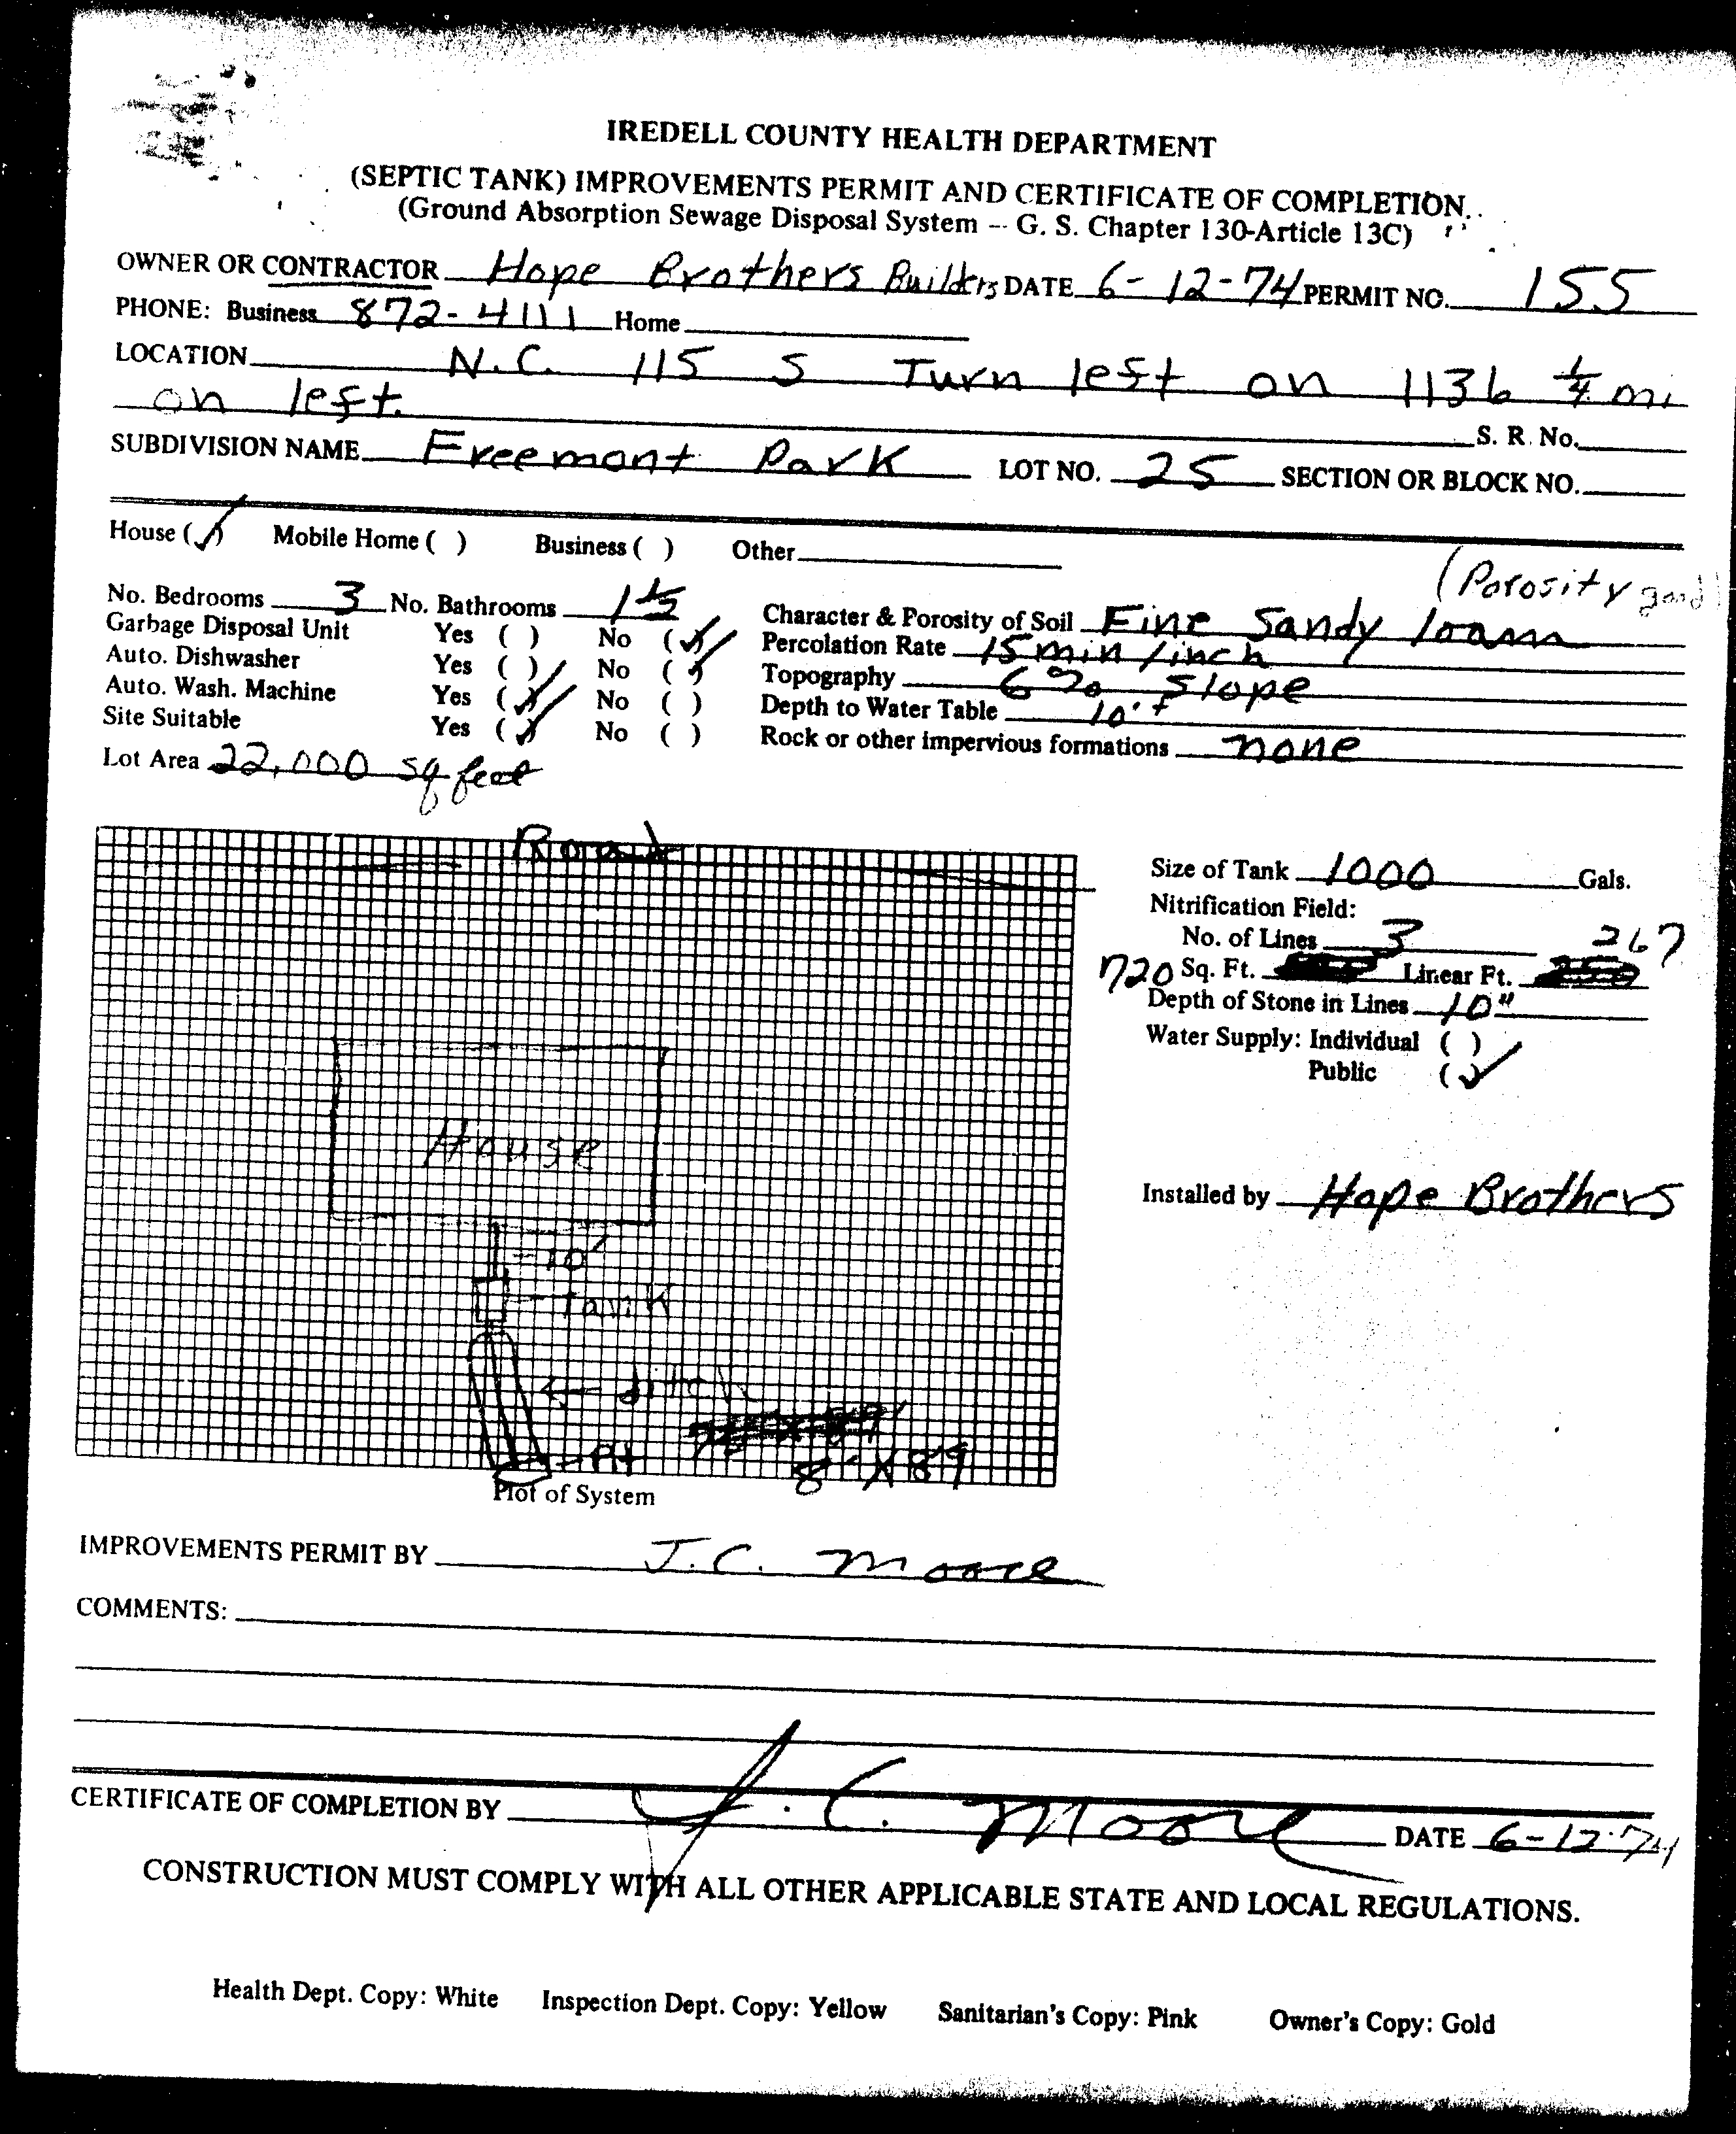 IREDELL COUNTY HEALTH DEPARTMENT
(SEPTIC TANK) IMPROVEMENTS PERMIT AND CERTIFICATE OF COMPLETION
(Ground Absorption Sewage Disposal System -- G. S. Chapter 130-Article 13C)
OWNER OR CONTRACTOR Hope Brothers Builders DATE 6-12-74 PERMIT NO. 155
PHONE: Business 872-4111 Home
LOCATION N.C. 115 S Turn left on 1136 1/4 mi
on left.
S. R. No.
SUBDIVISION NAME Freemont Park LOT NO. 25 SECTION OR BLOCK NO.
House (✓) Mobile Home ( ) Business ( ) Other
(Porosity good)
No. Bedrooms 3 No. Bathrooms 1 1/2 Character & Porosity of Soil Fine Sandy loam
Garbage Disposal Unit Yes ( ) No (✓) Percolation Rate 15 min/inch
Auto. Dishwasher Yes ( ) No (✓) Topography 6% Slope
Auto. Wash. Machine Yes (✓) No ( ) Depth to Water Table 10'+
Site Suitable Yes (✓) No ( ) Rock or other impervious formations none
Lot Area 22,000 sq feet
Road
Size of Tank 1000 Gals.
Nitrification Field:
No. of Lines 3 267
720 Sq. Ft. Linear Ft. 250
Depth of Stone in Lines 10"
Water Supply: Individual ( )
Public (✓)
House
Installed by Hope Brothers
10'
Tank
← ditch
Pit
8' X 89
Plot of System
IMPROVEMENTS PERMIT BY J.C. Moore
COMMENTS:
CERTIFICATE OF COMPLETION BY J. C. Moore DATE 6-12-74
CONSTRUCTION MUST COMPLY WITH ALL OTHER APPLICABLE STATE AND LOCAL REGULATIONS.
Health Dept. Copy: White Inspection Dept. Copy: Yellow Sanitarian's Copy: Pink Owner's Copy: Gold